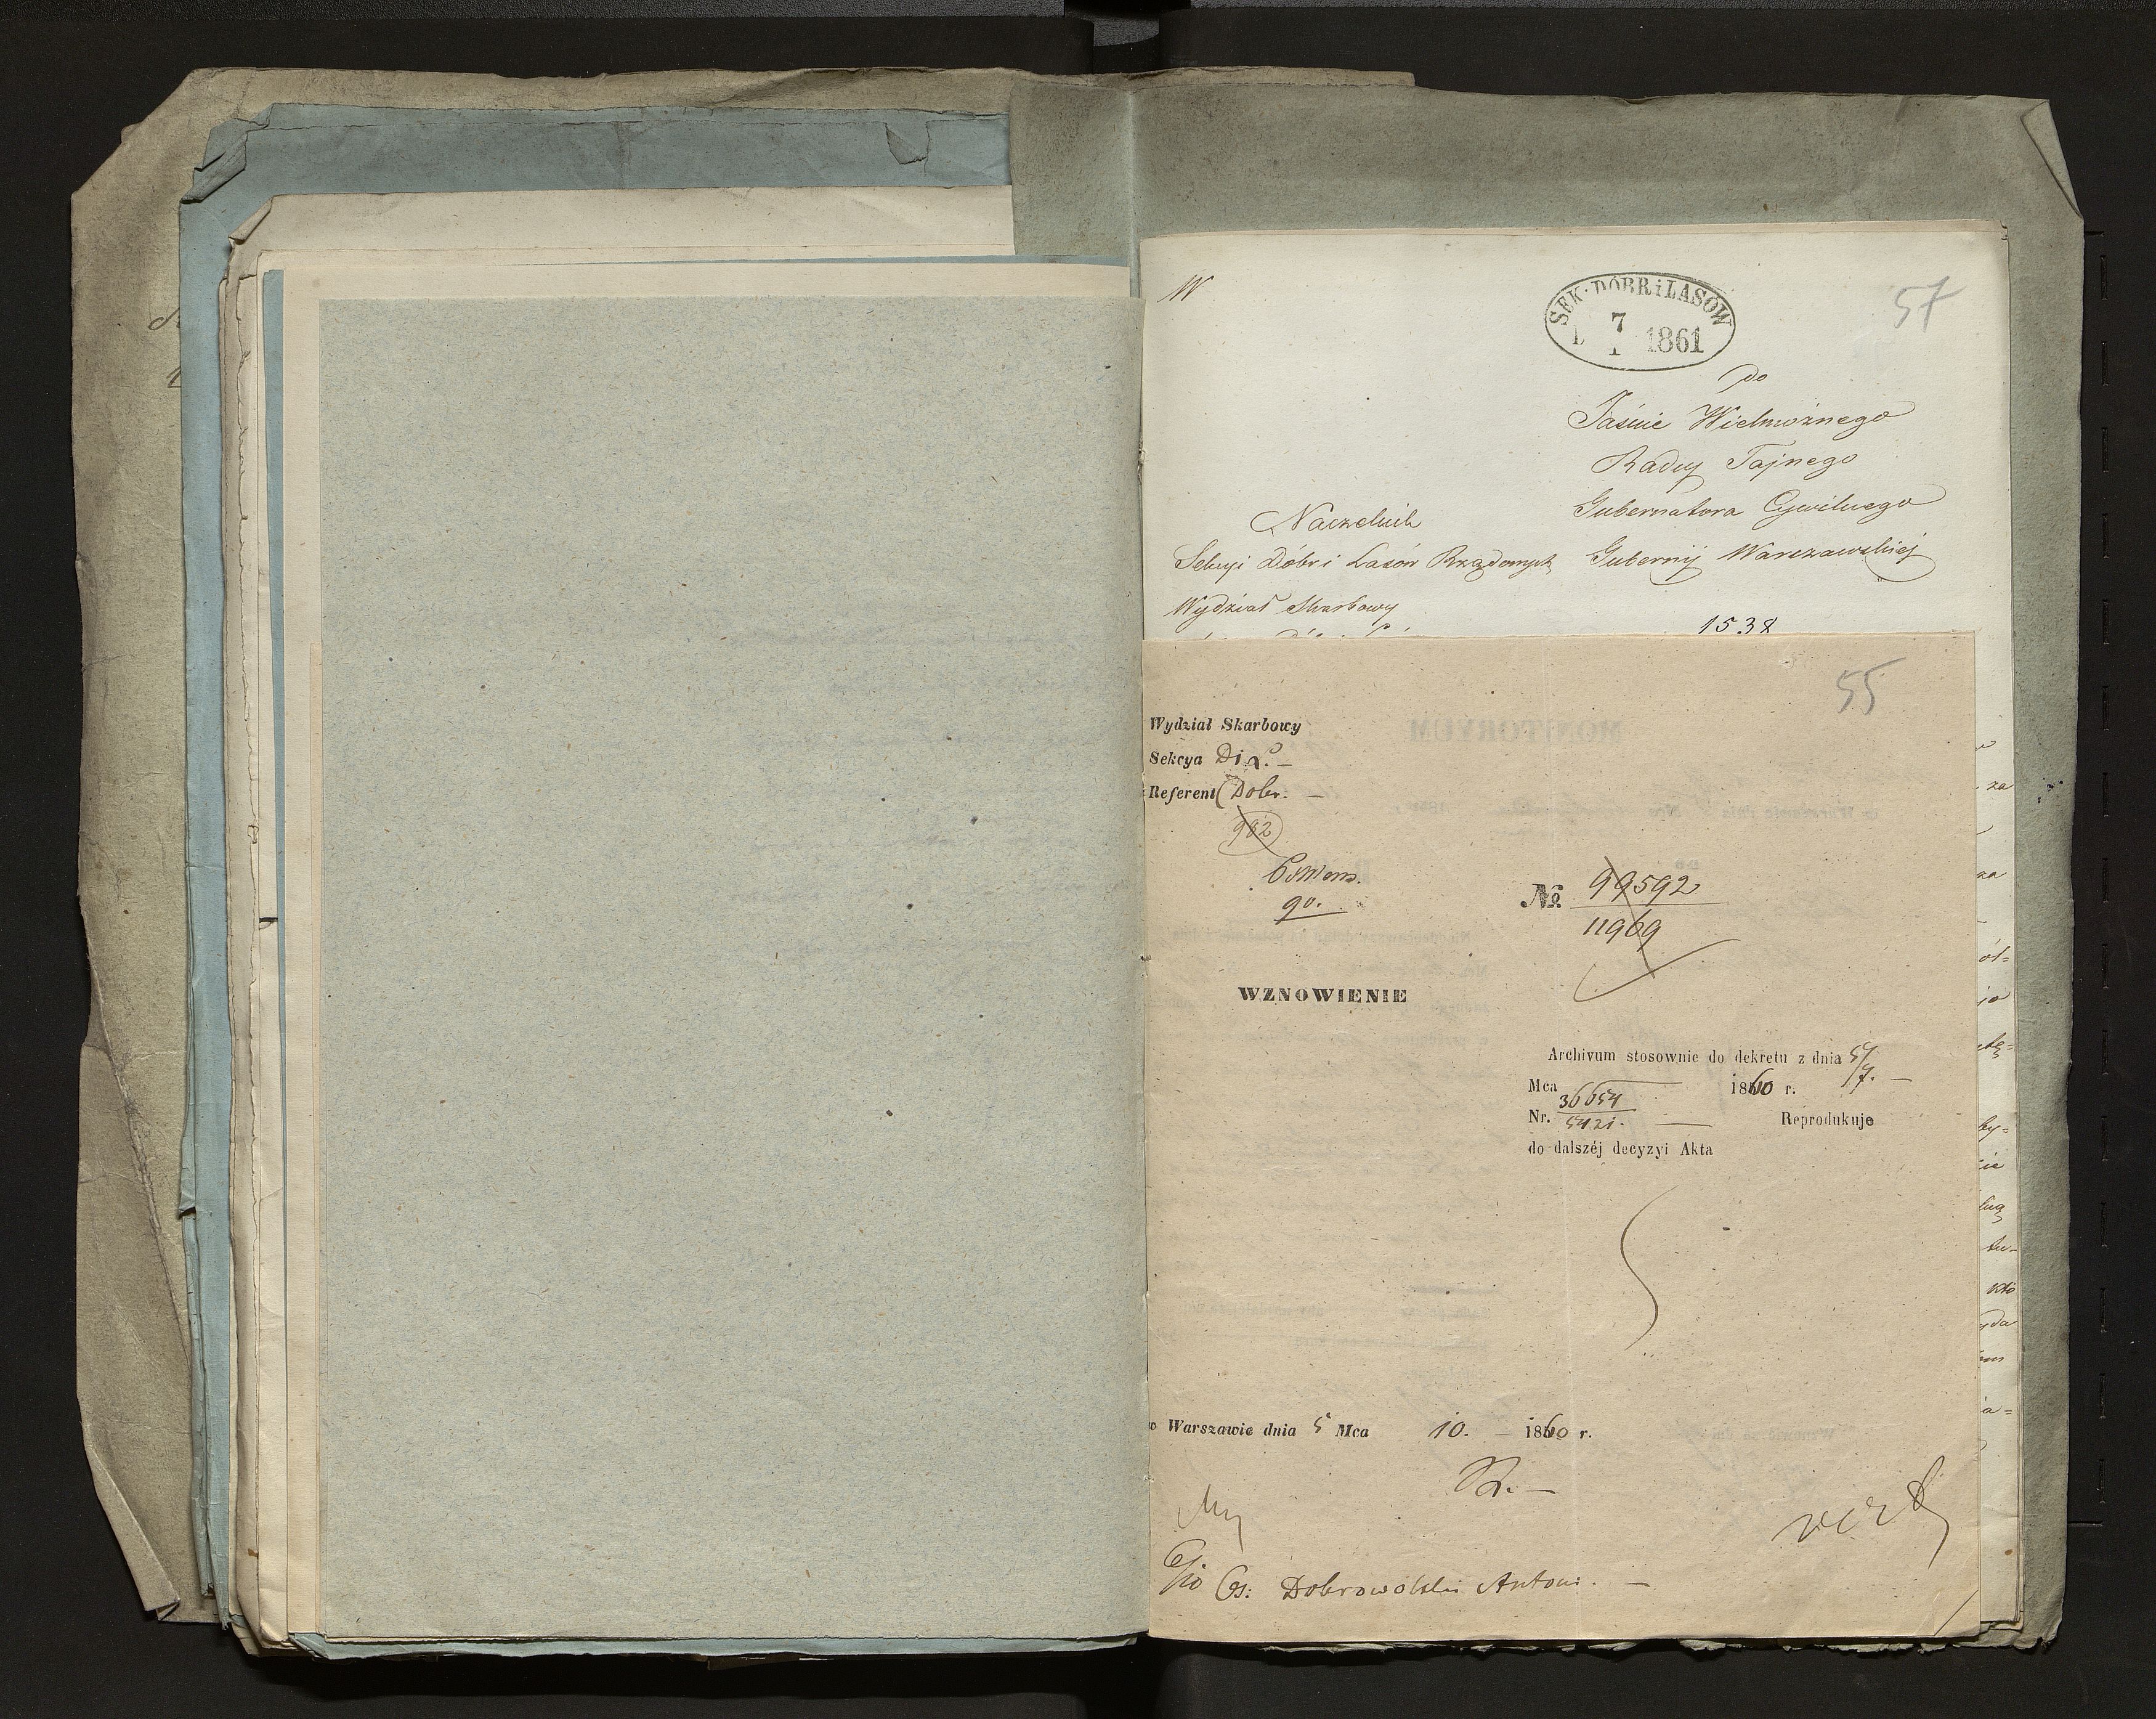 W
SEK: DÓBR i LASÓW
L 7/1 1861
57
do
Jaśnie Wielmożnego
Radcy Tajnego
Gubernatora Cywilnego
Gubernij Warszawskiej
Naczelnik
Sekcyi Dóbr i Lasów Rządowych
Wydział Skarbowy
1538
55
Wydział Skarbowy
Sekcya D i L. –
Referent Dobr. –
982
90.
№ 99592
11969
WZNOWIENIE
Archivum stosownie do dekretu z dnia 5/7. –
Mca 1860 r.
Nr. 36654
5421. – Reprodukuje
do dalszéj decyzyi Akta
w Warszawie dnia 5 Mca 10. – 1860 r.
6/10 Cs: Dobrowolski Antoni. –